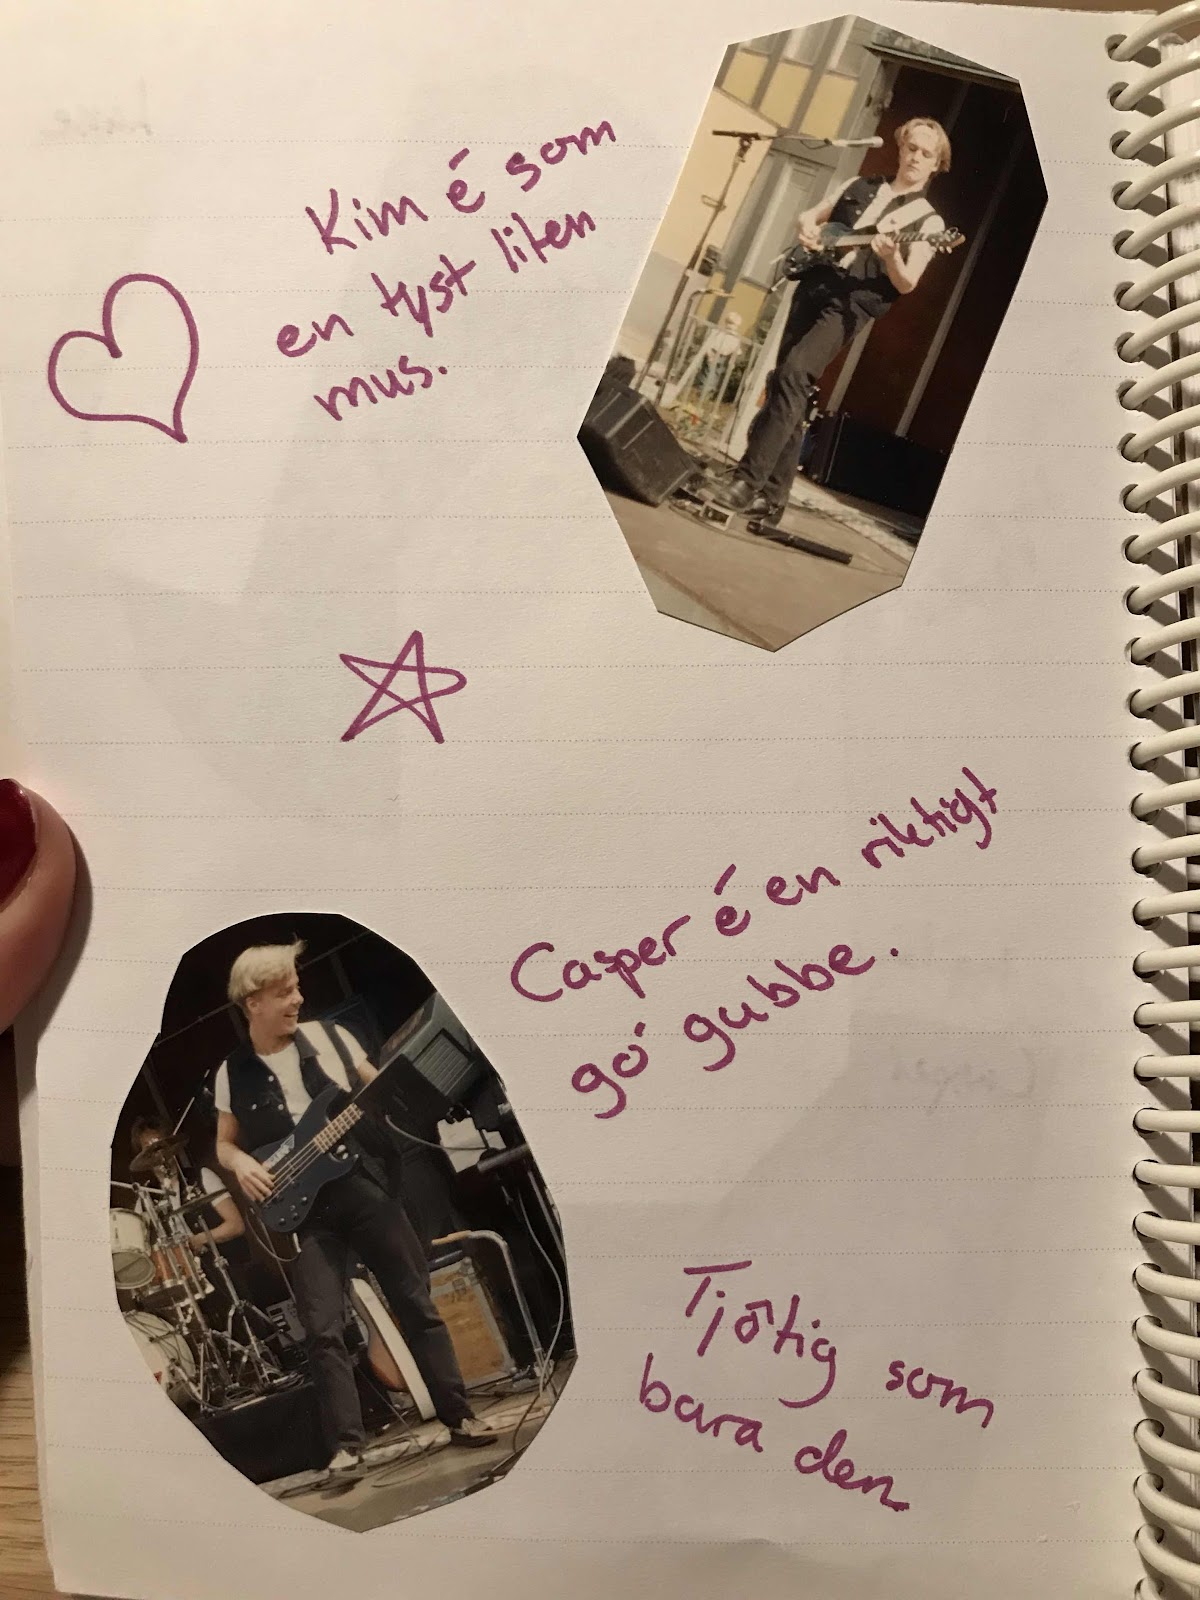 Kim é som
en tyst liten
mus.
Casper é en riktigt
gó gubbe.
Tjötig som
bara den